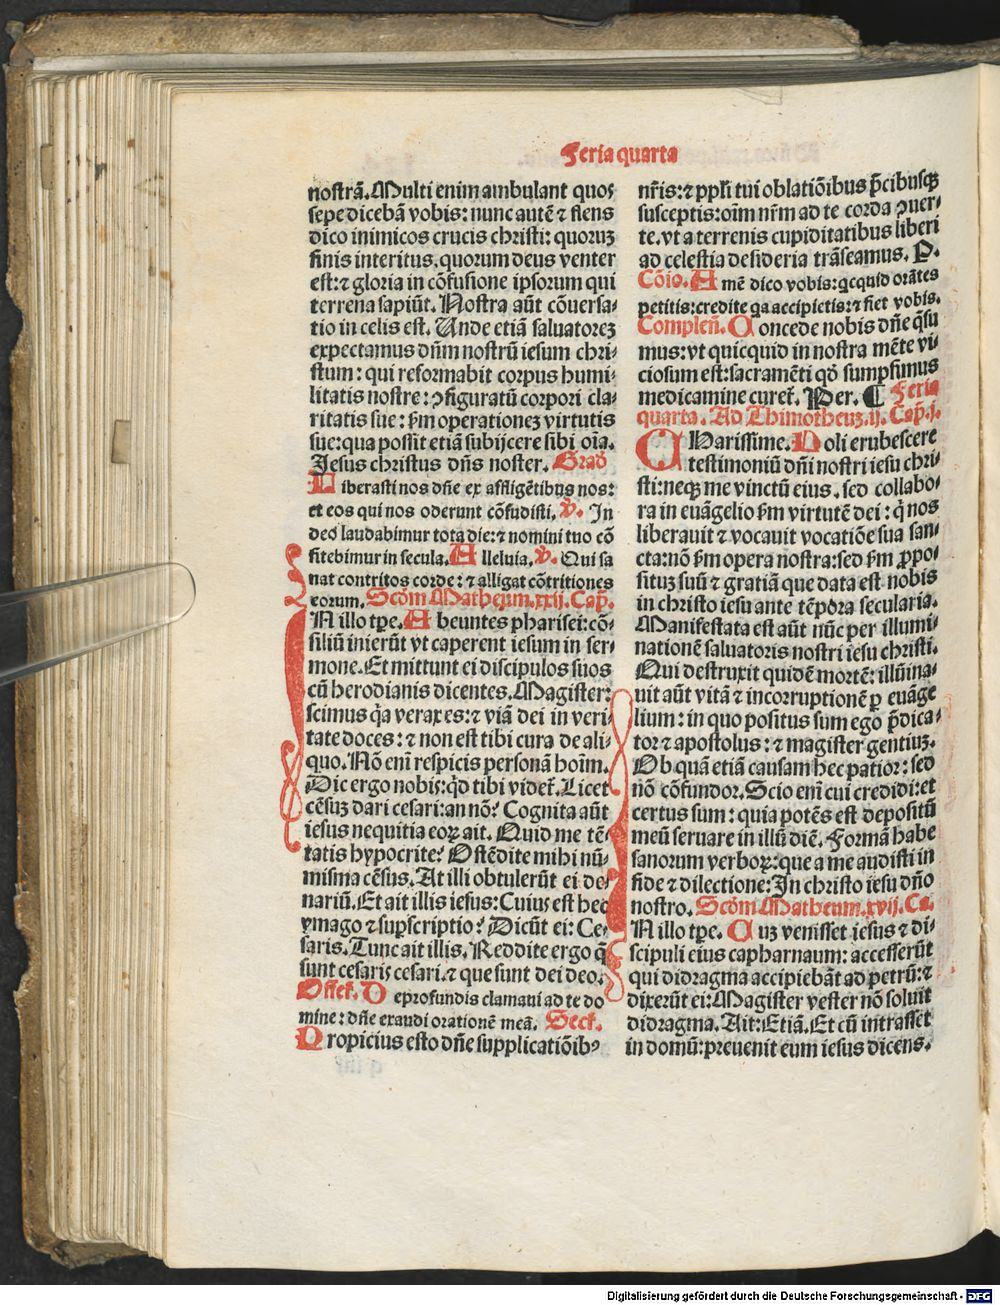 Feria quarta
nostrā. Multi enim ambulant quos
sepe dicebā vobis: nunc autē ⁊ flens
dico inimicos crucis christi: quoruꝫ
finis interitus. quorum deus venter
est: ⁊ gloria in cōfusione ipsorum qui
terrena sapiūt. Nostra aūt cōuersa⸗
tio in celis est. Unde etiā saluatoreꝫ
expectamus dūm nostrū iesum chri⸗
stum: qui reformabit corpus humi⸗
litatis nostre: ꝯfiguratū corpori cla⸗
ritatis sue: ẜm operationeꝫ virtutis
sue: qua possit etiā subijcere sibi oīa.
Jesus christus dn̄s noster. Grad̄
Liberasti nos dn̄e ex affligētibꝰ nos:
et eos qui nos oderunt cōfudisti. ℣. In
deo laudabimur tota die: ⁊ nomini tuo cō
fitebimur in secula. Alleluia. ℣. Qui sa
nat contritos corde: ⁊ alligat cōtritiones
eorum. Scd̄m Matheum. xxij. Cap̄.
IN illo tp̄e. Abeuntes pharisei: cō⸗
siliū inierūt vt caperent iesum in ser⸗
mone. Et mittunt ei discipulos suos
cū herodianis dicentes. Magister:
scimus q̄a verax es: ⁊ viā dei in veri⸗
tate doces: ⁊ non est tibi cura de ali⸗
quo. Nō enī respicis personā hoīm.
Dic ergo nobis: qd̄ tibi videt̄. Licet
cēsuꝫ dari cesari: an nō? Cognita aūt
iesus nequitia eoꝝ ait. Quid me tē⸗
tatis hypocrite? Ostēdite mihi nū⸗
misma cēsus. At illi obtulerūt ei de⸗
nariū. Et ait illis iesus: Cuius est hec
ymago ⁊ sup̄scriptio? Dicūt ei: Ce⸗
saris. Tunc ait illis. Reddite ergo q̄
sunt cesaris cesari. ⁊ que sunt dei deo.
Offer̄. De profundis clamaui ad te do
mine: dn̄e exaudi orationē meā. Secr̄.
Propicius esto dn̄e supplicatiōibꝰ
nr̄is: ⁊ pp̄li tui oblatiōibus p̄cibusqꝫ
susceptis: oīm nr̄m ad te corda ꝯuer⸗
te. vt a terrenis cupiditatibus liberi
ad celestia desideria trāseamus. P.
Cōio. Amē dico vobis: qcquid orātes
petitis: credite qa accipietis: ⁊ fiet vobis.
Compleñ. Concede nobis dn̄e q̄su
mus: vt quicquid in nostra mēte vi⸗
ciosum est: sacramēti qd̄ sumpsimus
medicamine curet̄. Per. ¶ Feria
quarta. Ad Thimotheuꝫ. ij. Cap̄. j.
CHarissime. Noli erubescere
testimoniū dn̄i nostri iesu chri⸗
sti: neqꝫ me vinctū eius. sed collabo⸗
ra in euāgelio ẜm virtutē dei: q̄ nos
liberauit ⁊ vocauit vocatiōe sua san⸗
cta: nō ẜm opera nostra: sed ẜm ꝓpo⸗
situꝫ suū ⁊ gratiā que data est nobis
in christo iesu ante tēpora secularia.
Manifestata est aūt nūc per illumi⸗
nationē saluatoris nostri iesu christi.
Qui destruxit quidē mortē: illūina⸗
uit aūt vitā ⁊ incorruptionē ꝑ euāge
lium: in quo positus sum ego p̄dica⸗
tor ⁊ apostolus: ⁊ magister gentiuꝫ.
Ob quā etiā causam hec patior: sed
nō cōfundor. Scio enī cui credidi: et
certus sum: quia potēs est depositū
meū seruare in illū diē. Formā habe
sanorum verboꝝ: que a me audisti in
fide ⁊ dilectione: In christo iesu dn̄o
nostro. Scd̄m Matheum. xvij. Ca.
IN illo tp̄e. Cuꝫ venisset iesus ⁊ di⸗
scipuli eius capharnaum: accesserūt
qui didragma accipiebāt ad petrū: ⁊
dixerūt ei: Magister vester nō soluit
didragma. Ait: Etiā. Et cū intrasset
in domū: preuenit eum iesus dicens.
Digitalisierung gefördert durch die Deutsche Forschungsgemeinschaft - DFG